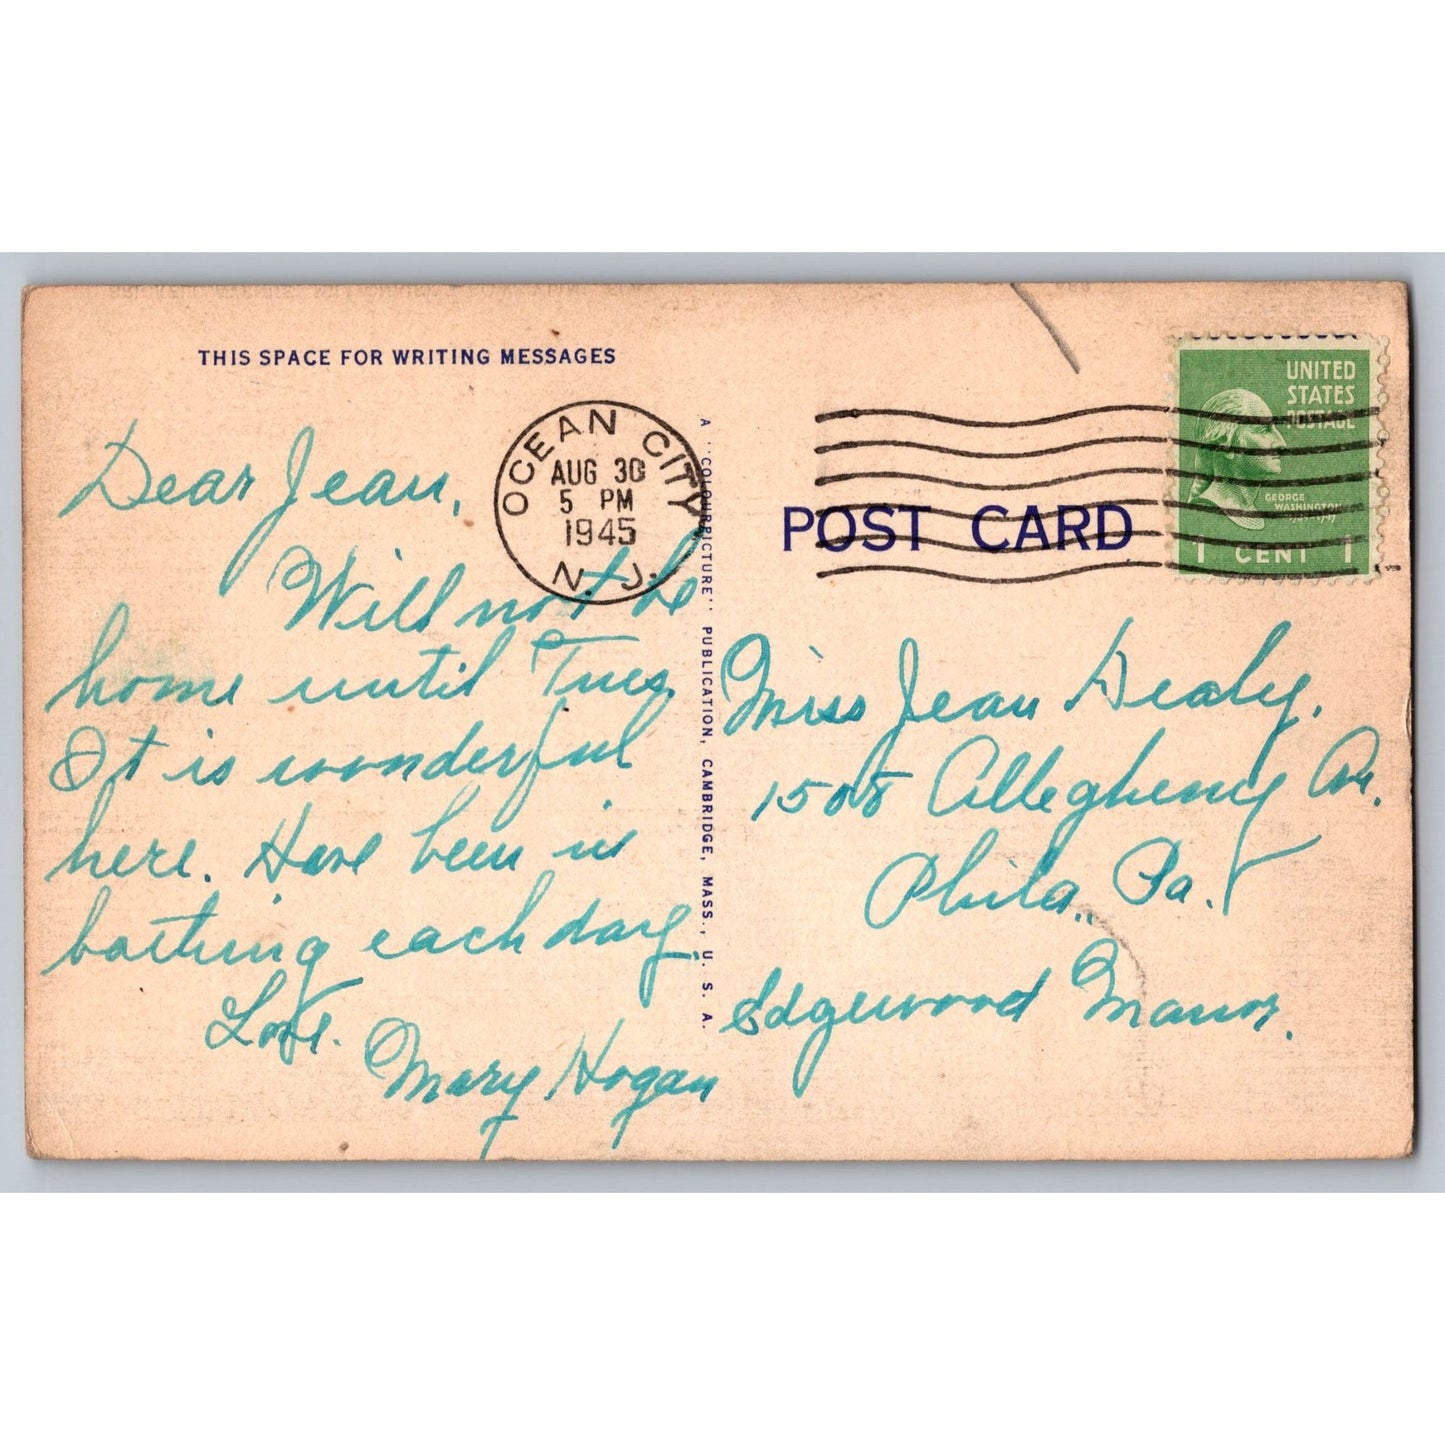 THIS SPACE FOR WRITING MESSAGES
Dear Jean,
Will not be
home until Tues.
It is wonderful
here. Have been in
bathing each day.
Love.
Mary Hogan
OCEAN CITY
AUG 30
5 PM
1945
N.J.
A "COLOURPICTURE" PUBLICATION, CAMBRIDGE, MASS., U. S. A.
POST CARD
UNITED
STATES
POSTAGE
GEORGE
WASHINGTON
1 CENT 1
Miss Jean Healy,
1508 Allegheny Ave.
Phila., Pa.
Edgewood Manor.